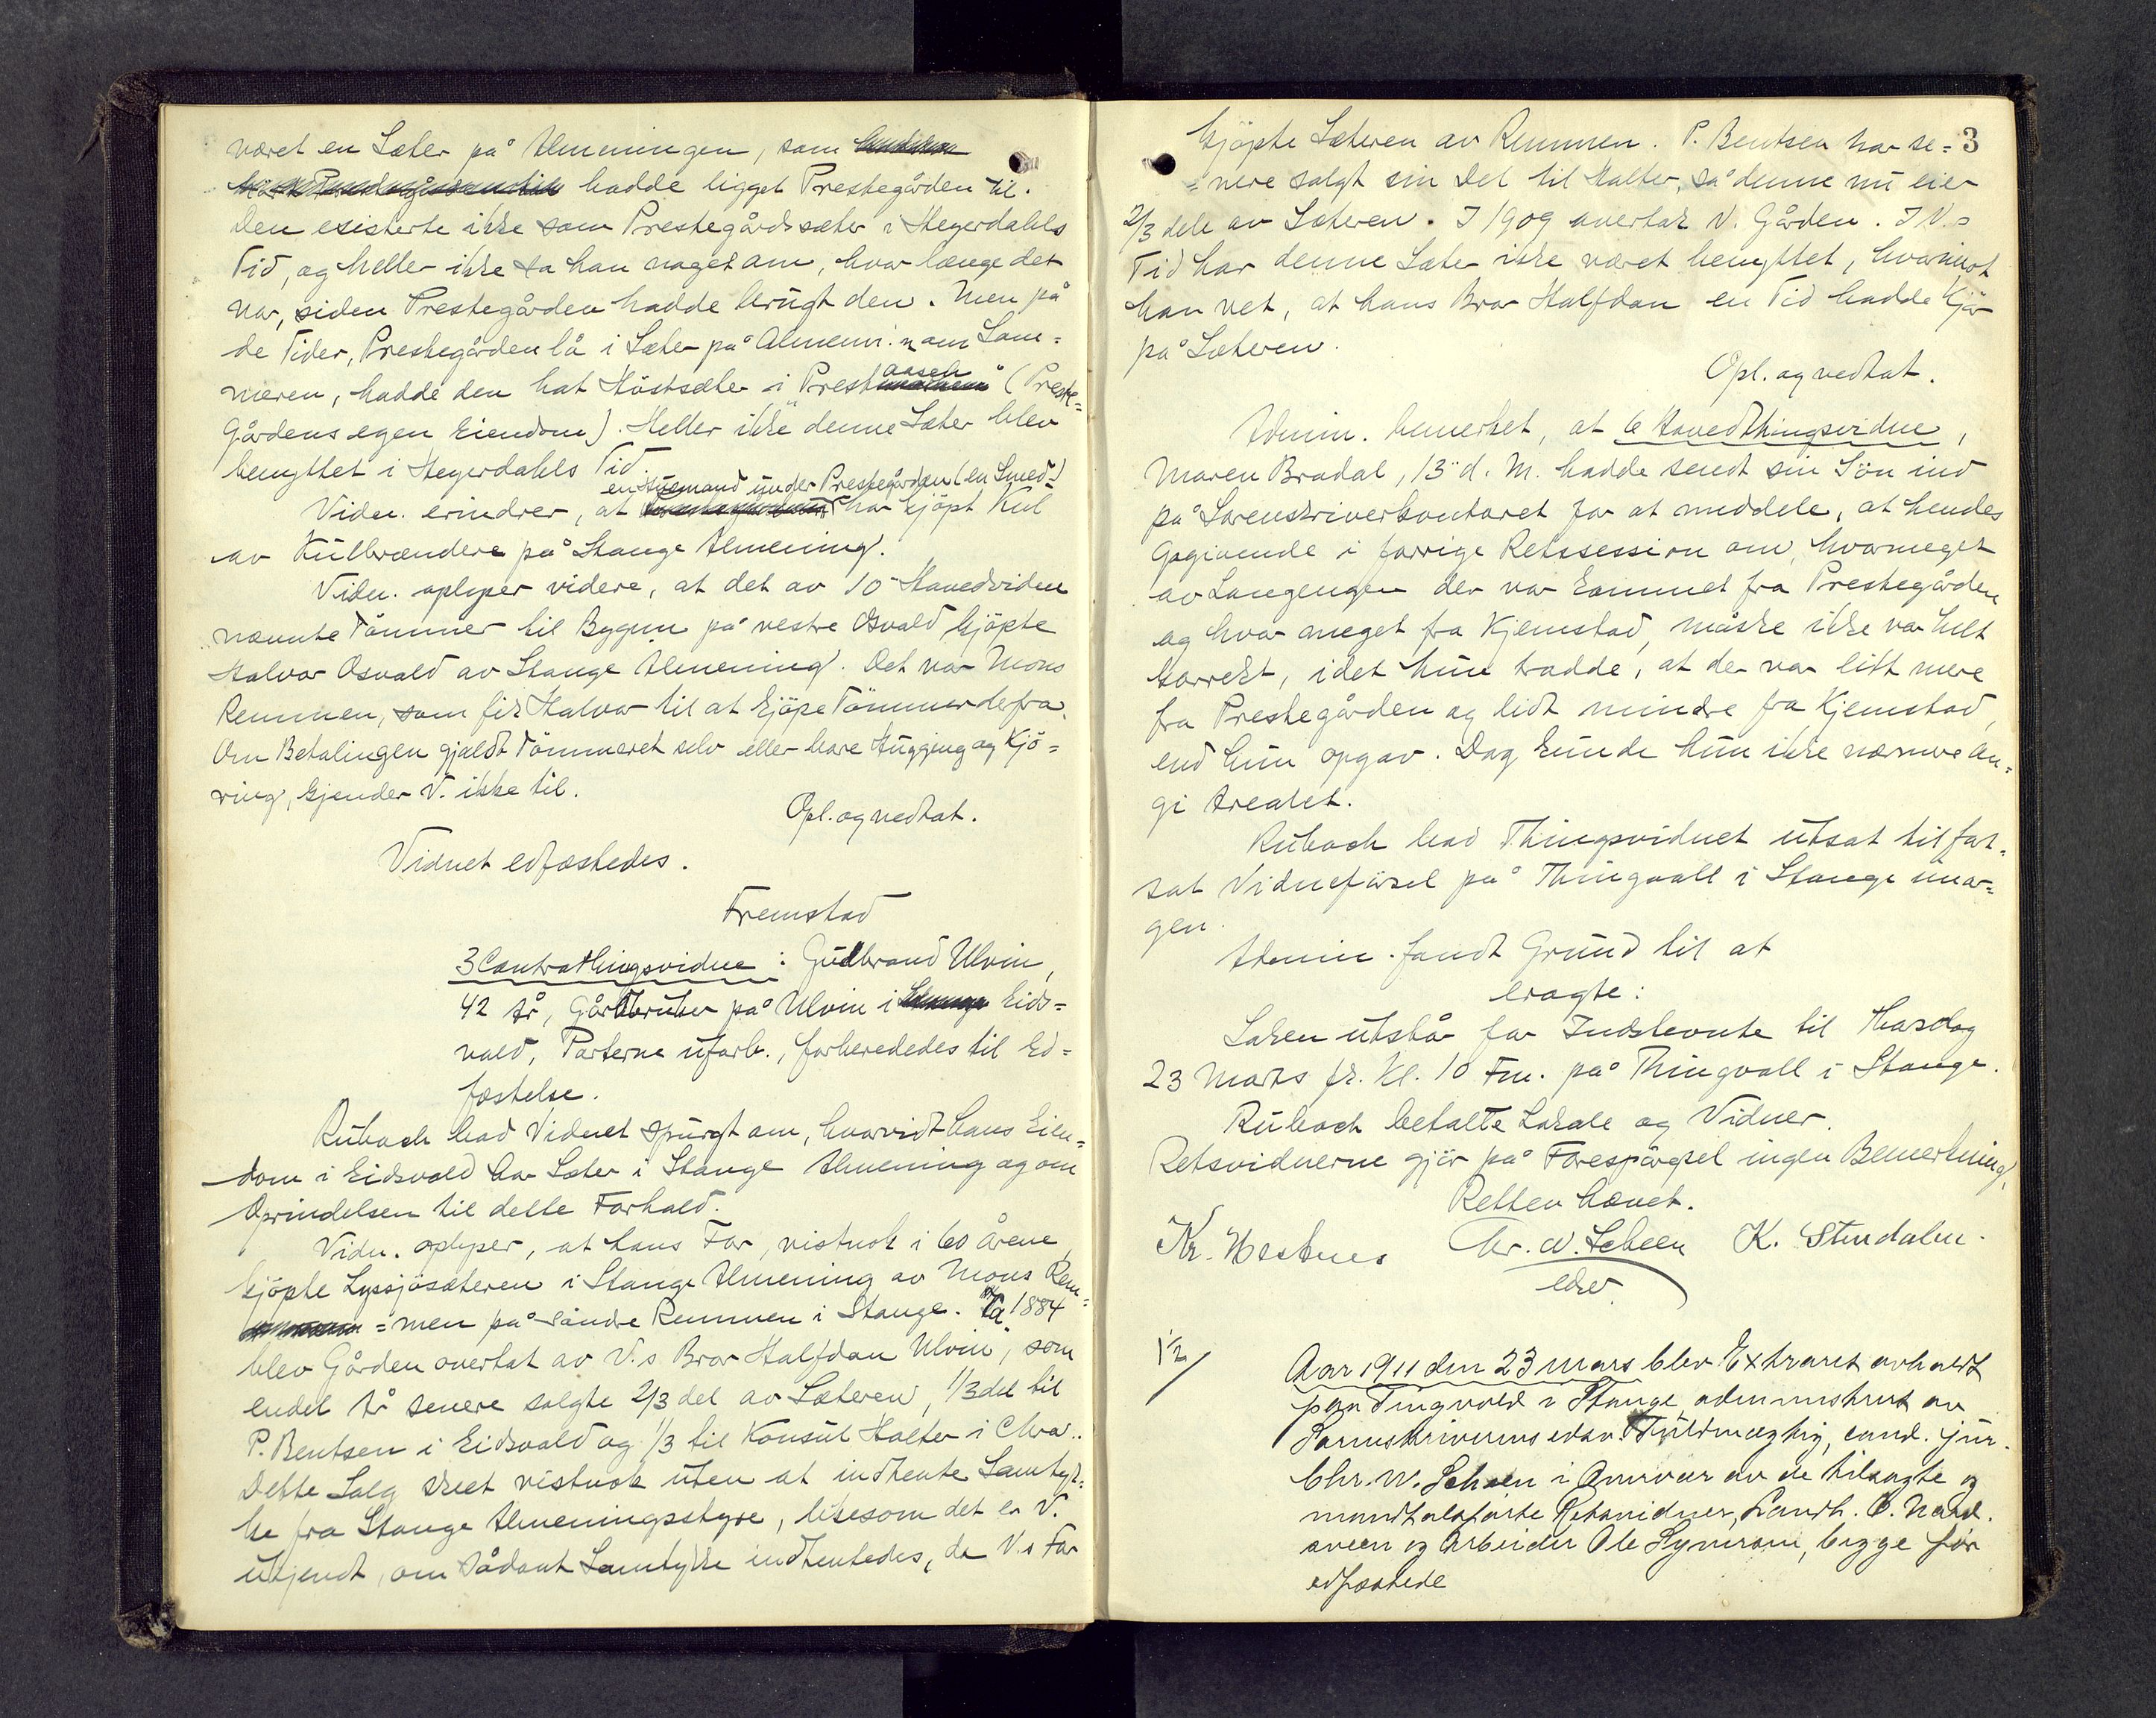 været en Sæter på Almeningen, som
hadde ligget Prestegården til.
Den esisterte ikke som Prestegårdssæter i Heyerdahls
Tid, og heller ikke sa han noget om, hvor længe det
var, siden Prestegården hadde brugt den. Men på
de Tider, Prestegården lå i Sæter på Almenin.n om Som=
meren, hadde den hat Höstsæter i Prestaasen (Preste=
Gårdens egen Eiendom). Heller ikke denne Sæter blev
benyttet i Heyerdahls Tid.
en Husmand under Prestegården (en Smed)
Vidn. erindrer, at har kjöpt Kul
av Kulbrændere på Stange Almening.
Vidn. oplyser videre, at det av 10 Hovedvidne
nævnte Tömmer til Bygnin på vestre Osvald kjöpte
Halvor Osvald av Stange Almening. Det var Mons
Remmen, som fik Halvor til at kjöpe Tömmer derfra.
Om Betalingen gjaldt Tömmeret selv eller bare Hugging og Kjö=
ring, kjender V. ikke til.
Opl. og vedtat.
Vidnet edfæstedes.
Fremstod
3 Contrathingsvidne: Gulbrand Ulvin,
42 År, Gårdbruker på Ulvin i Eids=
vold, Parterne uforb., forberededes til Ed=
fæstelse.
Rubach bad Vidnet spurgt om, hvorvidt hans Eien=
dom i Eidsvold har Sæter i Stange Almening og om
Oprindelsen til dette Forhold.
Vidn. oplyser, at hans Far, vistnok i 60 Årene,
kjöpte Lyssjösæteren i Stange Almening av Mons Rem=
=men på söndre Remmen i Stange. Ca 1884
blev Gården overtat av V.s Bror Halfdan Ulvin, som
endel År senere solgte 2/3 del av Sæteren, 1/3 del til
P. Bentsen i Eidsvold og 1/3 til Konsul Halter i Chra..
Dette Salg skeet vistnok uten at indhente Samtyk=
ke fra Stange Almeningsstyre, likesom det er V.
ukjendt, om sådant Samtykke indhentedes, da V.s Far
kjöpte Sæteren av Remmen. P. Bentsen har se= 3
=nere solgt sin Del til Halter, så denne nu eier
2/3 dele av Sæteren. I 1909 overtok V. Gården. I V.s
Tid har denne Sæter ikke været benyttet, hvorimot
han vet, at hans Bror Halfdan en Tid hadde Kjör
på Sæteren.
Opl. og vedtat.
Admin. bemerket, at 6 Hovedthingsvidne,
Maren Bradal, 13 d. M. hadde sendt sin Sön ind
på Sorenskriverkontoret for at meddele, at hendes
Opgivende i forrige Retssession om, hvormeget
av Langengen der var kommet fra Prestegården
og hvor meget fra Kjemstad, måske ikke var helt
korrekt, idet hun trodde, at der var litt mere
fra Prestegården og lidt mindre fra Kjemstad,
end hun opgav. Dog kunde hun ikke nærmere an=
gi Arealet.
Rubach bad Thingsvidnet utsat til fort=
sat Vidneförsel på Thingvall i Stange imor=
gen.
Admin. fandt Grund til at
eragte:
Saken utstår for Indstevnte til Thorsdag
23 Marts fk. Kl. 10 Fm. på Thingvoll i Stange.
Rubach betalte Lokale og Vidner.
Retsvidnerne gjör på Forespörgsel ingen Bemerkning.
Retten hævet.
Kr. Hesbnes Chr. W. Scheen K. Stendalen.
edsv.
1 1/2 /
Aar 1911 den 23 mars blev Extraret avholdt
paa Tingvold i Stange, administrert av
Sorenskriverens edsv. Fuldmægtig, cand. jur.
Chr. W. Scheen i Overvær av de tilsagte og
mandtalsførte Retsvidner, Landh. O. Nord.
sveen og Arbeider Ole Hymroni, begge før
edfæstede